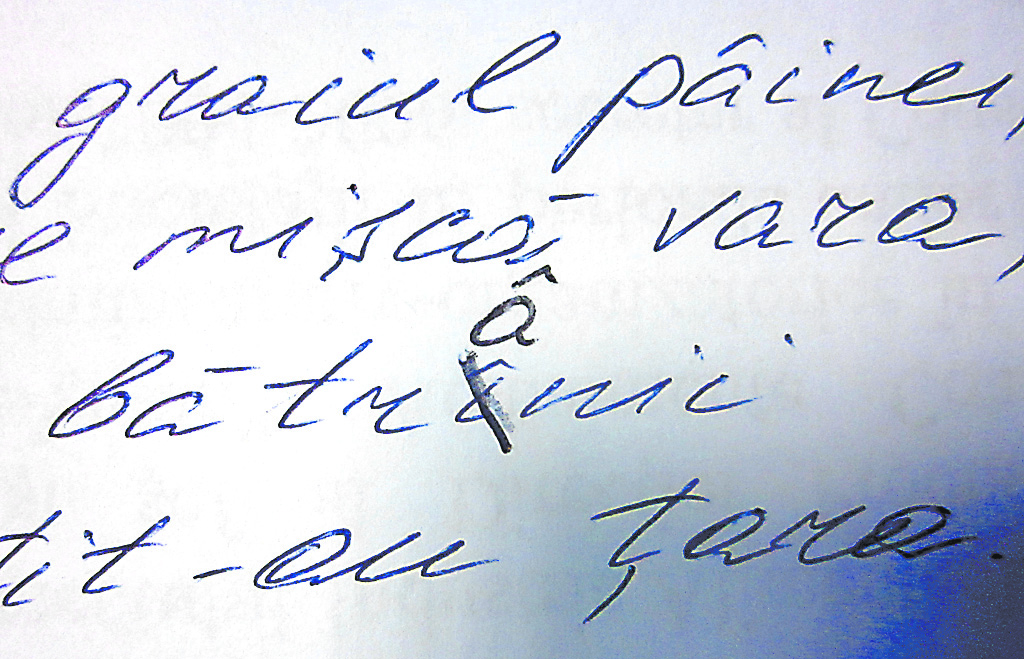 graiul pâinei,
e mișcă vara,
bătrânii
tit-au țara.